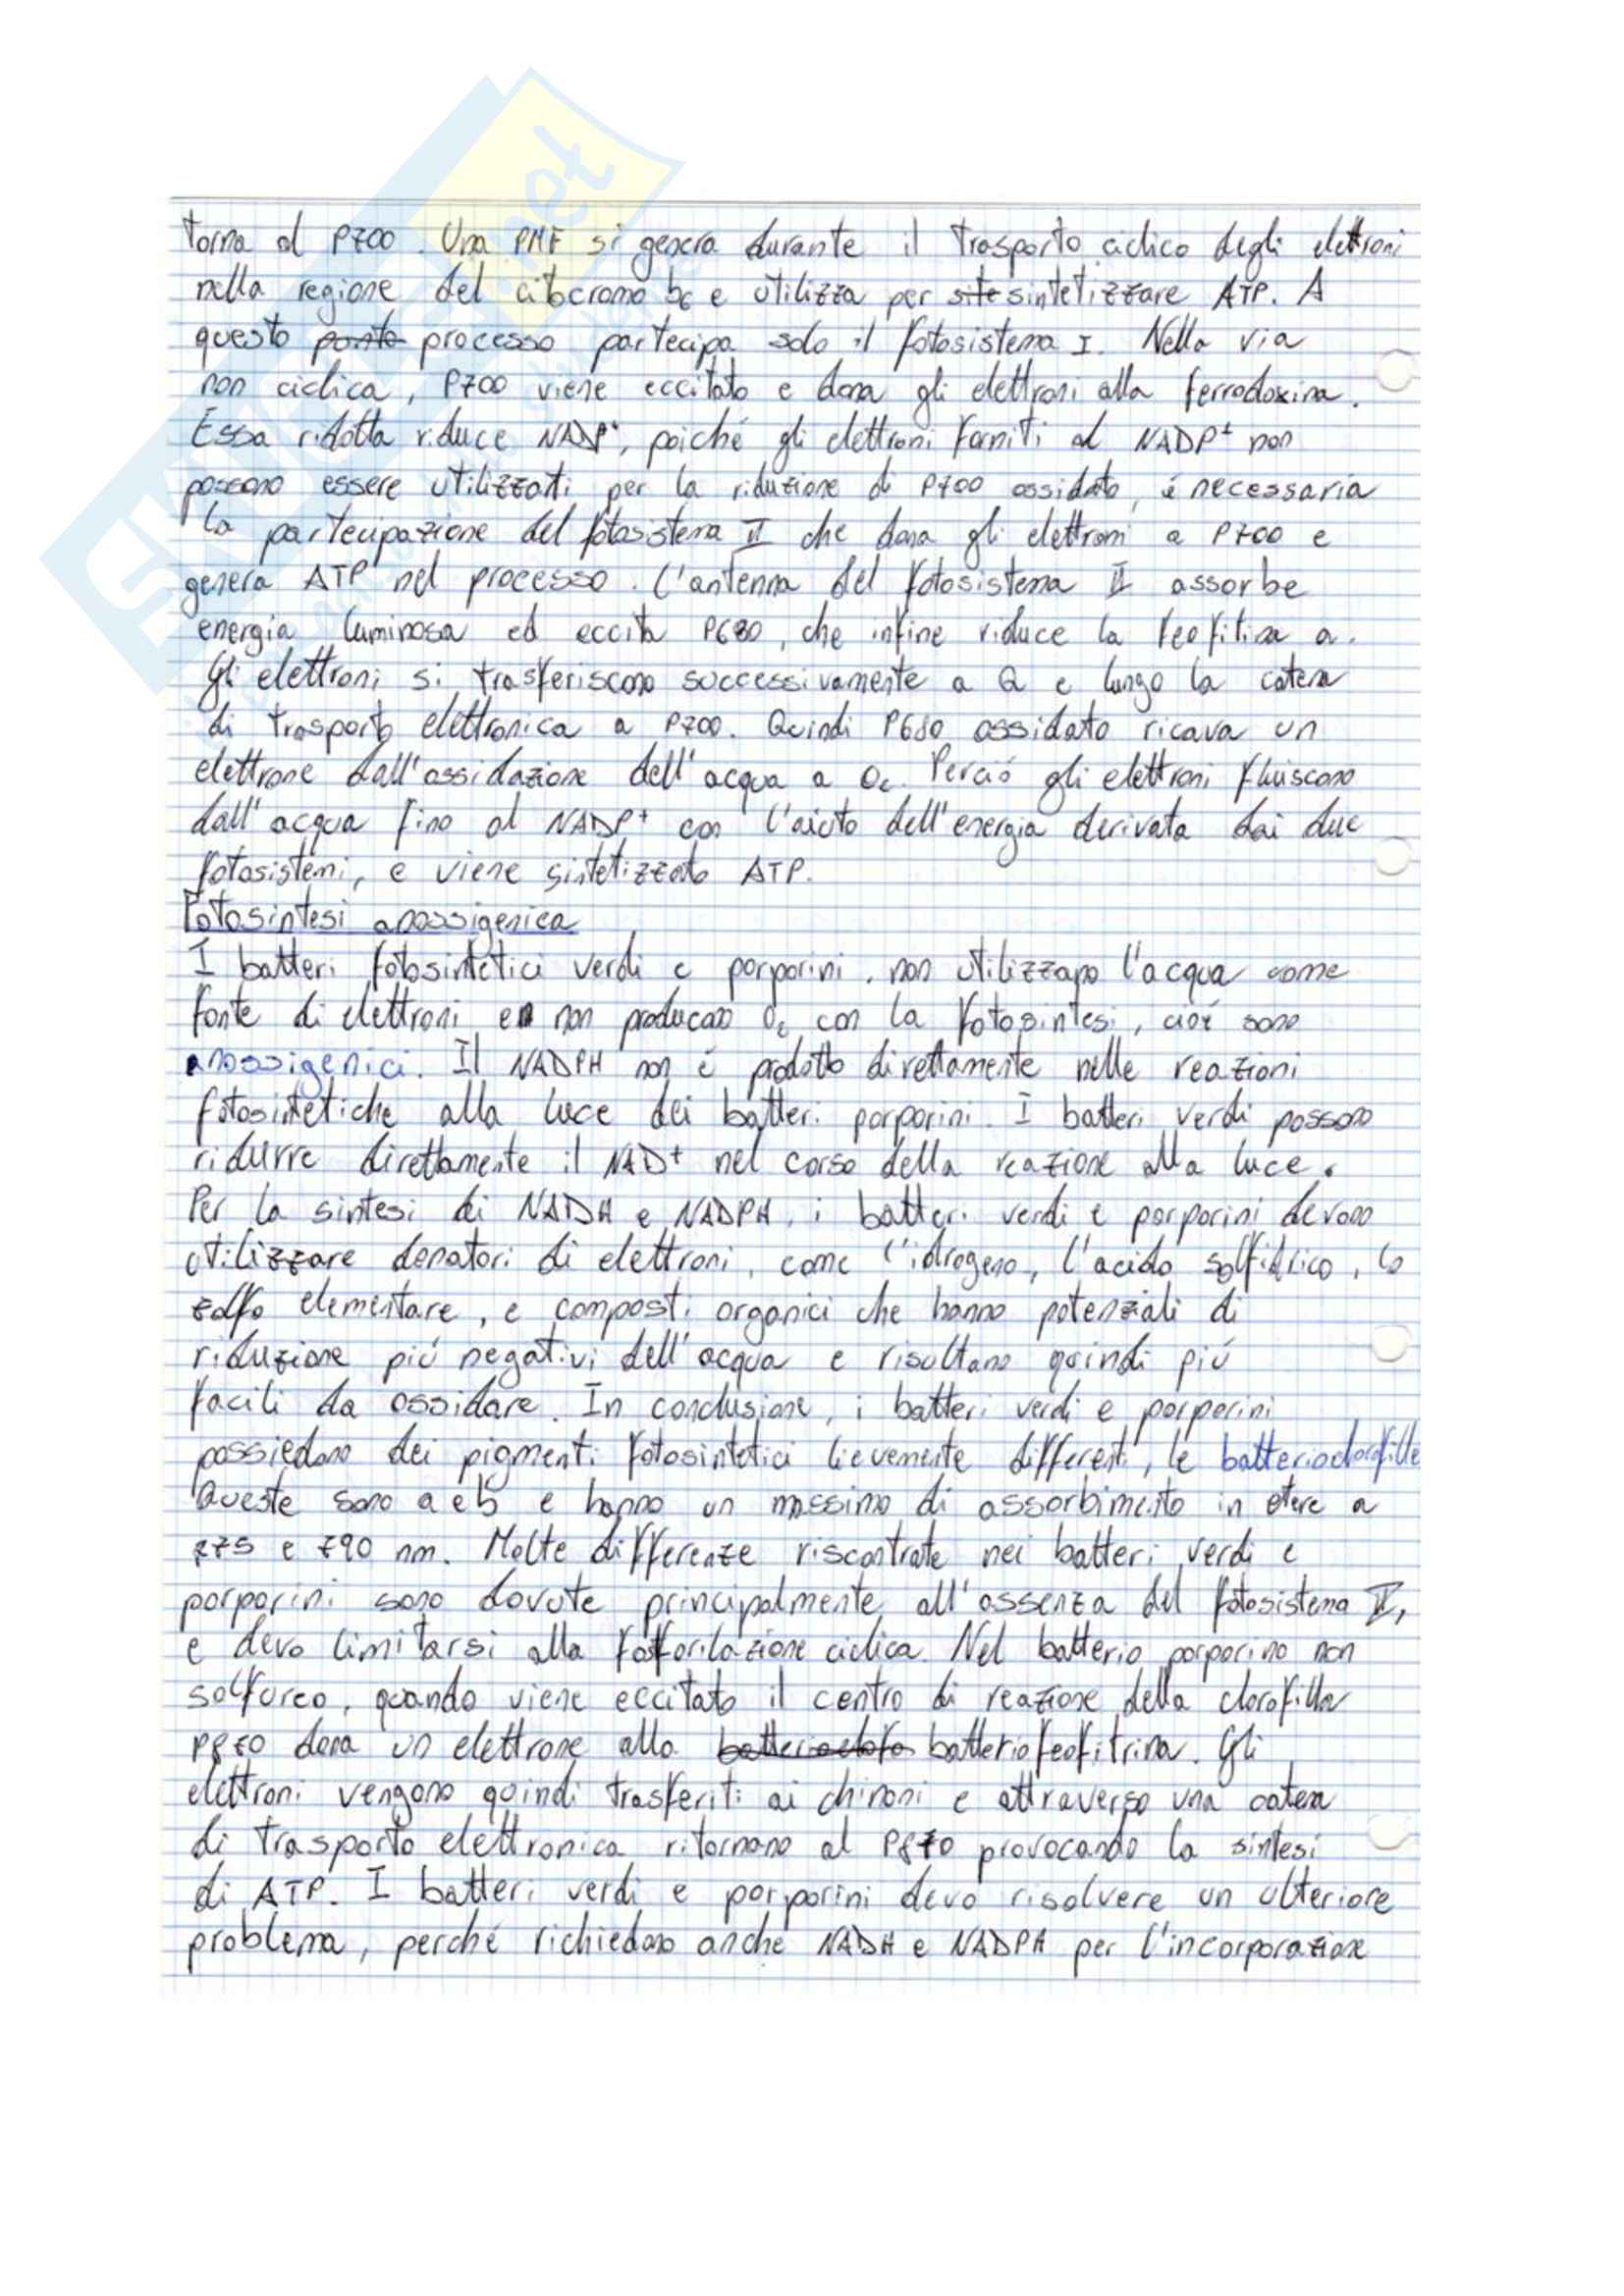 torna al P700. Una PMF si genera durante il trasporto ciclico degli elettroni
nella regione del citocromo b6 e utilizza per ste sintetizzare ATP. A
questo punto processo partecipa solo il fotosistema I. Nella via
non ciclica, P700 viene eccitato e dona gli elettroni alla ferrodoxina.
Essa ridotta riduce NADP+, poiché gli elettroni forniti al NADP+ non
possono essere utilizzati per la riduzione di P700 ossidato, é necessaria
la partecipazione del fotosistema II che dona gli elettroni a P700 e
genera ATP nel processo. L'antenna del fotosistema II assorbe
energia luminosa ed eccita P680, che infine riduce la feofitina a.
Gli elettroni si trasferiscono successivamente a Q e lungo la catena
di trasporto elettronica a P700. Quindi P680 ossidato ricava un
elettrone dall'ossidazione dell'acqua a O2. Perció gli elettroni fluiscono
dall'acqua fino al NADP+ con l'aiuto dell'energia derivata dai due
fotosistemi, e viene sintetizzato ATP.
Fotosintesi anossigenica
I batteri fotosintetici verdi e porporini, non utilizzano l'acqua come
fonte di elettroni e non producono O2 con la fotosintesi, cioé sono
anossigenici. Il NADPH non é prodotto direttamente nelle reazioni
fotosintetiche alla luce dei batteri porporini. I batteri verdi possono
ridurre direttamente il NAD+ nel corso della reazione alla luce.
Per la sintesi di NADH e NADPH, i batteri verdi e porporini devono
utilizzare donatori di elettroni, come l'idrogeno, l'acido solfidrico, lo
zolfo elementare, e composti organici che hanno potenziali di
riduzione piú negativi dell'acqua e risultano quindi piú
facili da ossidare. In conclusione, i batteri verdi e porporini
possiedono dei pigmenti fotosintetici lievemente differenti, le batterioclorofille
Queste sono a e b e hanno un massimo di assorbimento in etere a
775 e 790 nm. Molte differenze riscontrate nei batteri verdi e
porporini sono dovute principalmente all'assenza del fotosistema II,
e devo limitarsi alla fosforilazione ciclica. Nel batterio porporino non
solfureo, quando viene eccitato il centro di reazione della clorofilla
P870 dona un elettrone alla batterioclofo batteriofeofitrina. Gli
elettroni vengono quindi trasferiti ai chinoni e attraverso una catena
di trasporto elettronica ritornano al P870 provocando la sintesi
di ATP. I batteri verdi e porporini devo risolvere un ulteriore
problema, perché richiedono anche NADH e NADPH per l'incorporazione